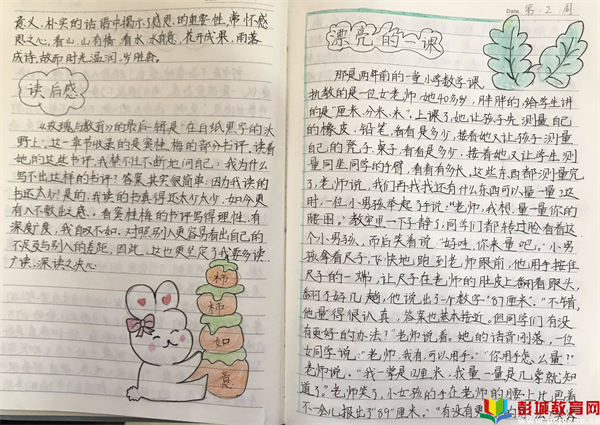 意义，朴实的话语中揭示了感恩的重要性，常怀感
恩之心，看山，山有情，看水，水有意，花开成果，雨落
成诗，故而时光温润，岁月生
读后感
《玫瑰与教育》的最后一辑是"在白纸黑字的大
野上"，这一章节收录的是窦桂梅的部分书评，读着
她的这些书评，我禁不住不断地问自己：我为什么
写不出这样的书评？答案其实很简单：因为我读的
书还太少！是的，我读的书真得还太少太少，如今更
有人不敷出之感，看窦桂梅的书评写得理性、有
深度、我自叹不如，对照别人更容易看出自己的
不足及与别人的差距，因此，这也更坚定了我要多读、
广读、深读之决心
柿
柿
如
意
Date. 第2周
漂亮的一课
那是两年前的一堂小学数学课。
执教的是一位女老师，她40多岁，胖胖的，给学生讲
的是"厘米、分米、米"，上课了，她让孩子先测量自己
的橡皮、铅笔，看看是多少，接着她又让孩子测量自
己的凳子、桌子，看看是多少，接着她又让学生测
量同坐同学的手臂，看看有多长，这些东西都测量完
了，老师说，我们再找找还有什么东西可以量一量？这
时，一位小男孩举起了手说："老师，我想量一量你的
腰围。"教室里一下子静了，同学们都转过脸看着这
个小男孩，而后笑着说，"好呀，你来量吧。"小男
孩拿着尺子，飞快地跑到老师跟前，他用手按住
尺子的一端，让尺子在老师的肚皮上翻着跟头，
翻了好几趟，他说出了一个数字"87厘米"，"不错，
他量得很认真，答案也基本接近。但同学们有没
有更好的办法？"老师说着。她的话音刚落，一位
女同学说，"老师，我有，可以用手。""你用手怎么量？"
老师说，"我一掌是12厘米，我量一量是几掌就知
道了。"老师笑了，小女孩的手在老师的腰上比画着
不一会儿报出了"89"厘米。""有没有更
彭城教育网